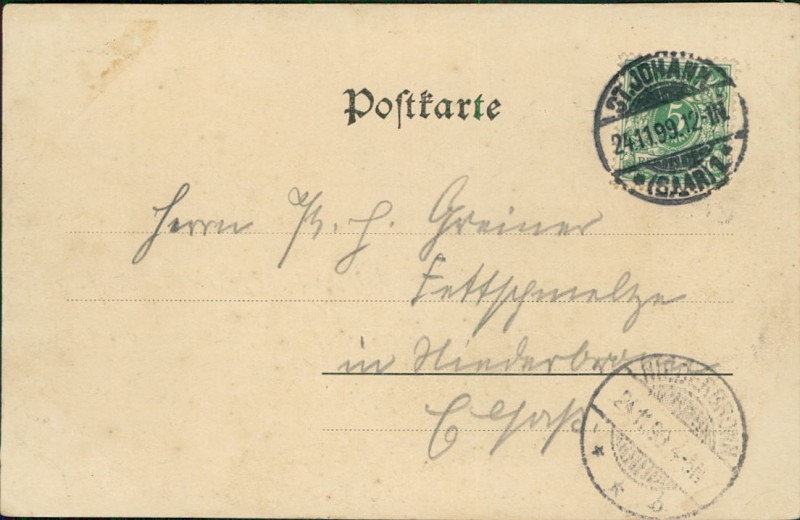 Postkarte
ST. JOHANN
5
24.11.99.12-1N.
* (SAAR) 1 *
Herrn H. Greiner
Fettschmelze
in Niederbronn
Elsaß.
NIEDERBRONN
24.11.99. 4-5N
* * b